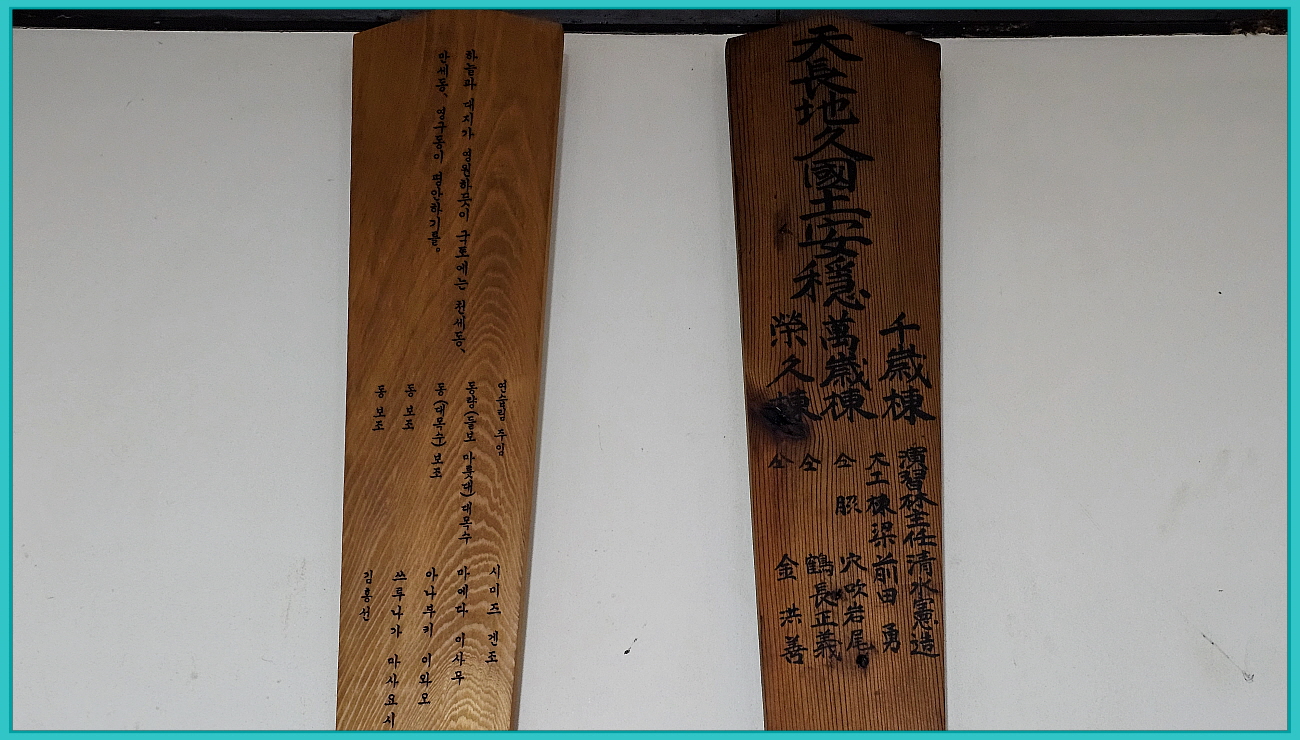 하늘과 대지가 영원하듯이 국토에는 천세동、
만세동、영구동이 평안하기를。
연습림 주임 시미즈 겐조
동량(들보 마룻대)대목수 마에다 이사무
동(대목수)보조 아나부키 이와오
동 보조 쓰루나가 마사요시
동 보조 김홍선
天長地久國土安穏
千歳棟
萬歳棟
榮久棟
演習林主任清水憲造
大工棟梁前田 勇
仝 穴吹岩尾
仝 鶴長正義
仝 金 洪善